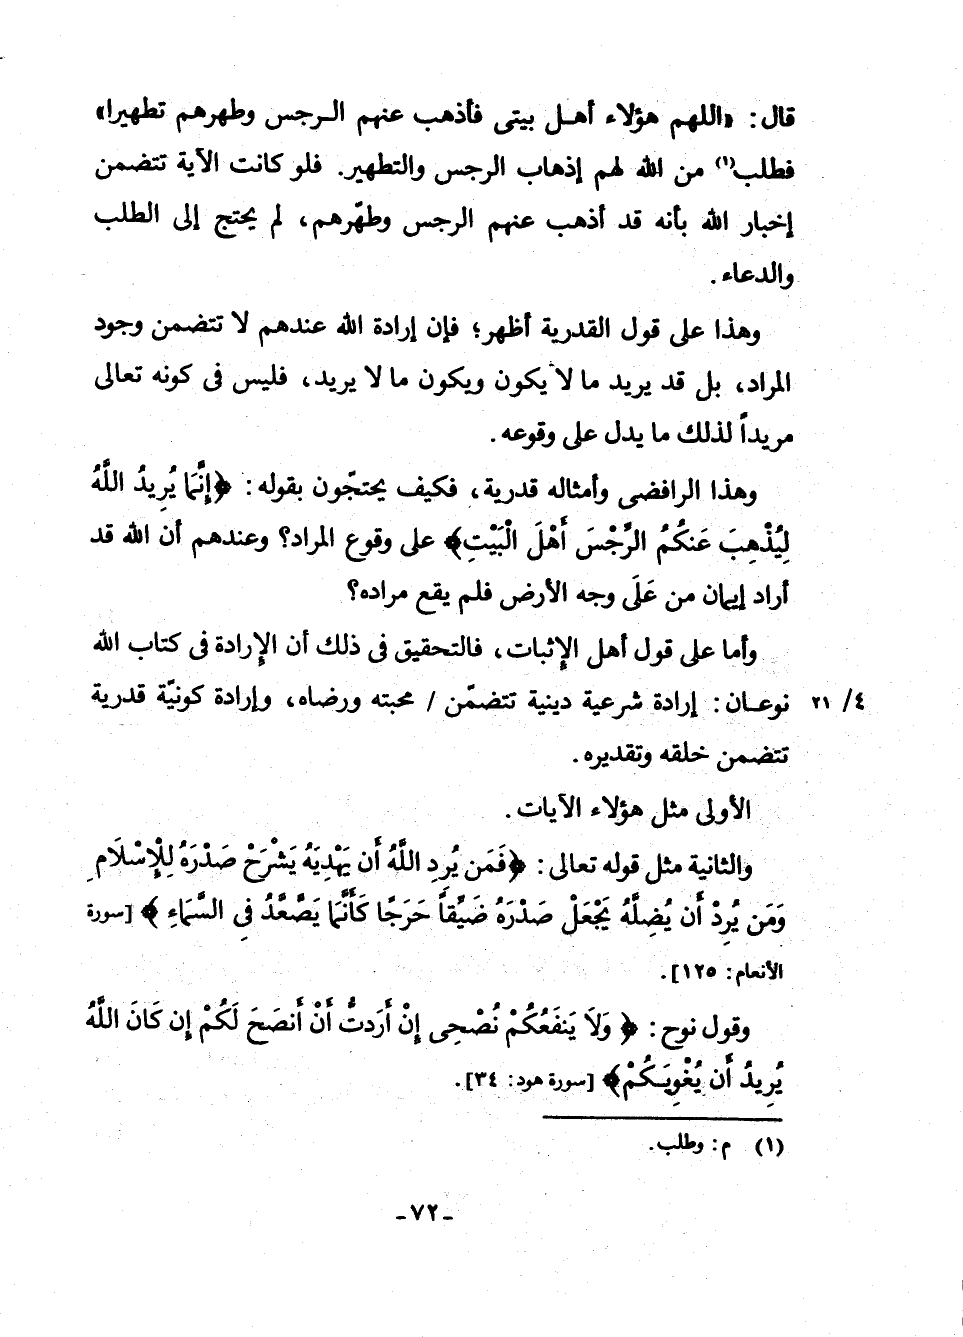 قال: «اللهم هؤلاء أهـل بيتى فأذهب عنهم الـرجس وطهرهم تطهيرا»
فطلب(١) من الله لهم إذهاب الرجس والتطهير. فلو كانت الآية تتضمن
إخبار الله بأنه قد أذهب عنهم الرجس وطهّرهم، لم يحتج إلى الطلب
والدعاء.
وهذا على قول القدرية أظهر؛ فإن إرادة الله عندهم لا تتضمن وجود
المراد، بل قد يريد ما لا يكون ويكون ما لا يريد، فليس فى كونه تعالى
مريداً لذلك ما يدل على وقوعه.
وهذا الرافضى وأمثاله قدرية، فكيف يحتجّون بقوله: ﴿إِنَّمَا يُرِيدُ اللَّهُ
لِيُذْهِبَ عَنكُمُ الرِّجْسَ أَهْلَ الْبَيْتِ﴾ على وقوع المراد؟ وعندهم أن الله قد
أراد إيمان من عَلَى وجه الأرض فلم يقع مراده؟
وأما على قول أهل الإثبات، فالتحقيق فى ذلك أن الإرادة فى كتاب الله
نوعـان: إرادة شرعية دينية تتضمّن / محبته ورضاه، وإرادة كونيّة قدرية
٤/ ٢١
تتضمن خلقه وتقديره.
الأولى مثل هؤلاء الآيات.
والثانية مثل قوله تعالى: ﴿فَمَن يُرِدِ اللَّهُ أَن يَهْدِيَهُ يَشْرَحْ صَدْرَهُ لِلْإِسْلَامِ
وَمَن يُرِدْ أَن يُضِلَّهُ يَجْعَلْ صَدْرَهُ ضَيِّقاً حَرَجًا كَأَنَّمَا يَصَّعَّدُ فِى السَّمَاءِ﴾ [سورة
الأنعام: ١٢٥].
وقول نوح: ﴿وَلَا يَنفَعُكُمْ نُصْحِى إِنْ أَرَدتُّ أَنْ أَنصَحَ لَكُمْ إِن كَانَ اللَّهُ
يُرِيدُ أَن يُغْوِيَـكُمْ﴾ [سورة هود: ٣٤].
(١) م: وطلب.
ـ٧٢ـ